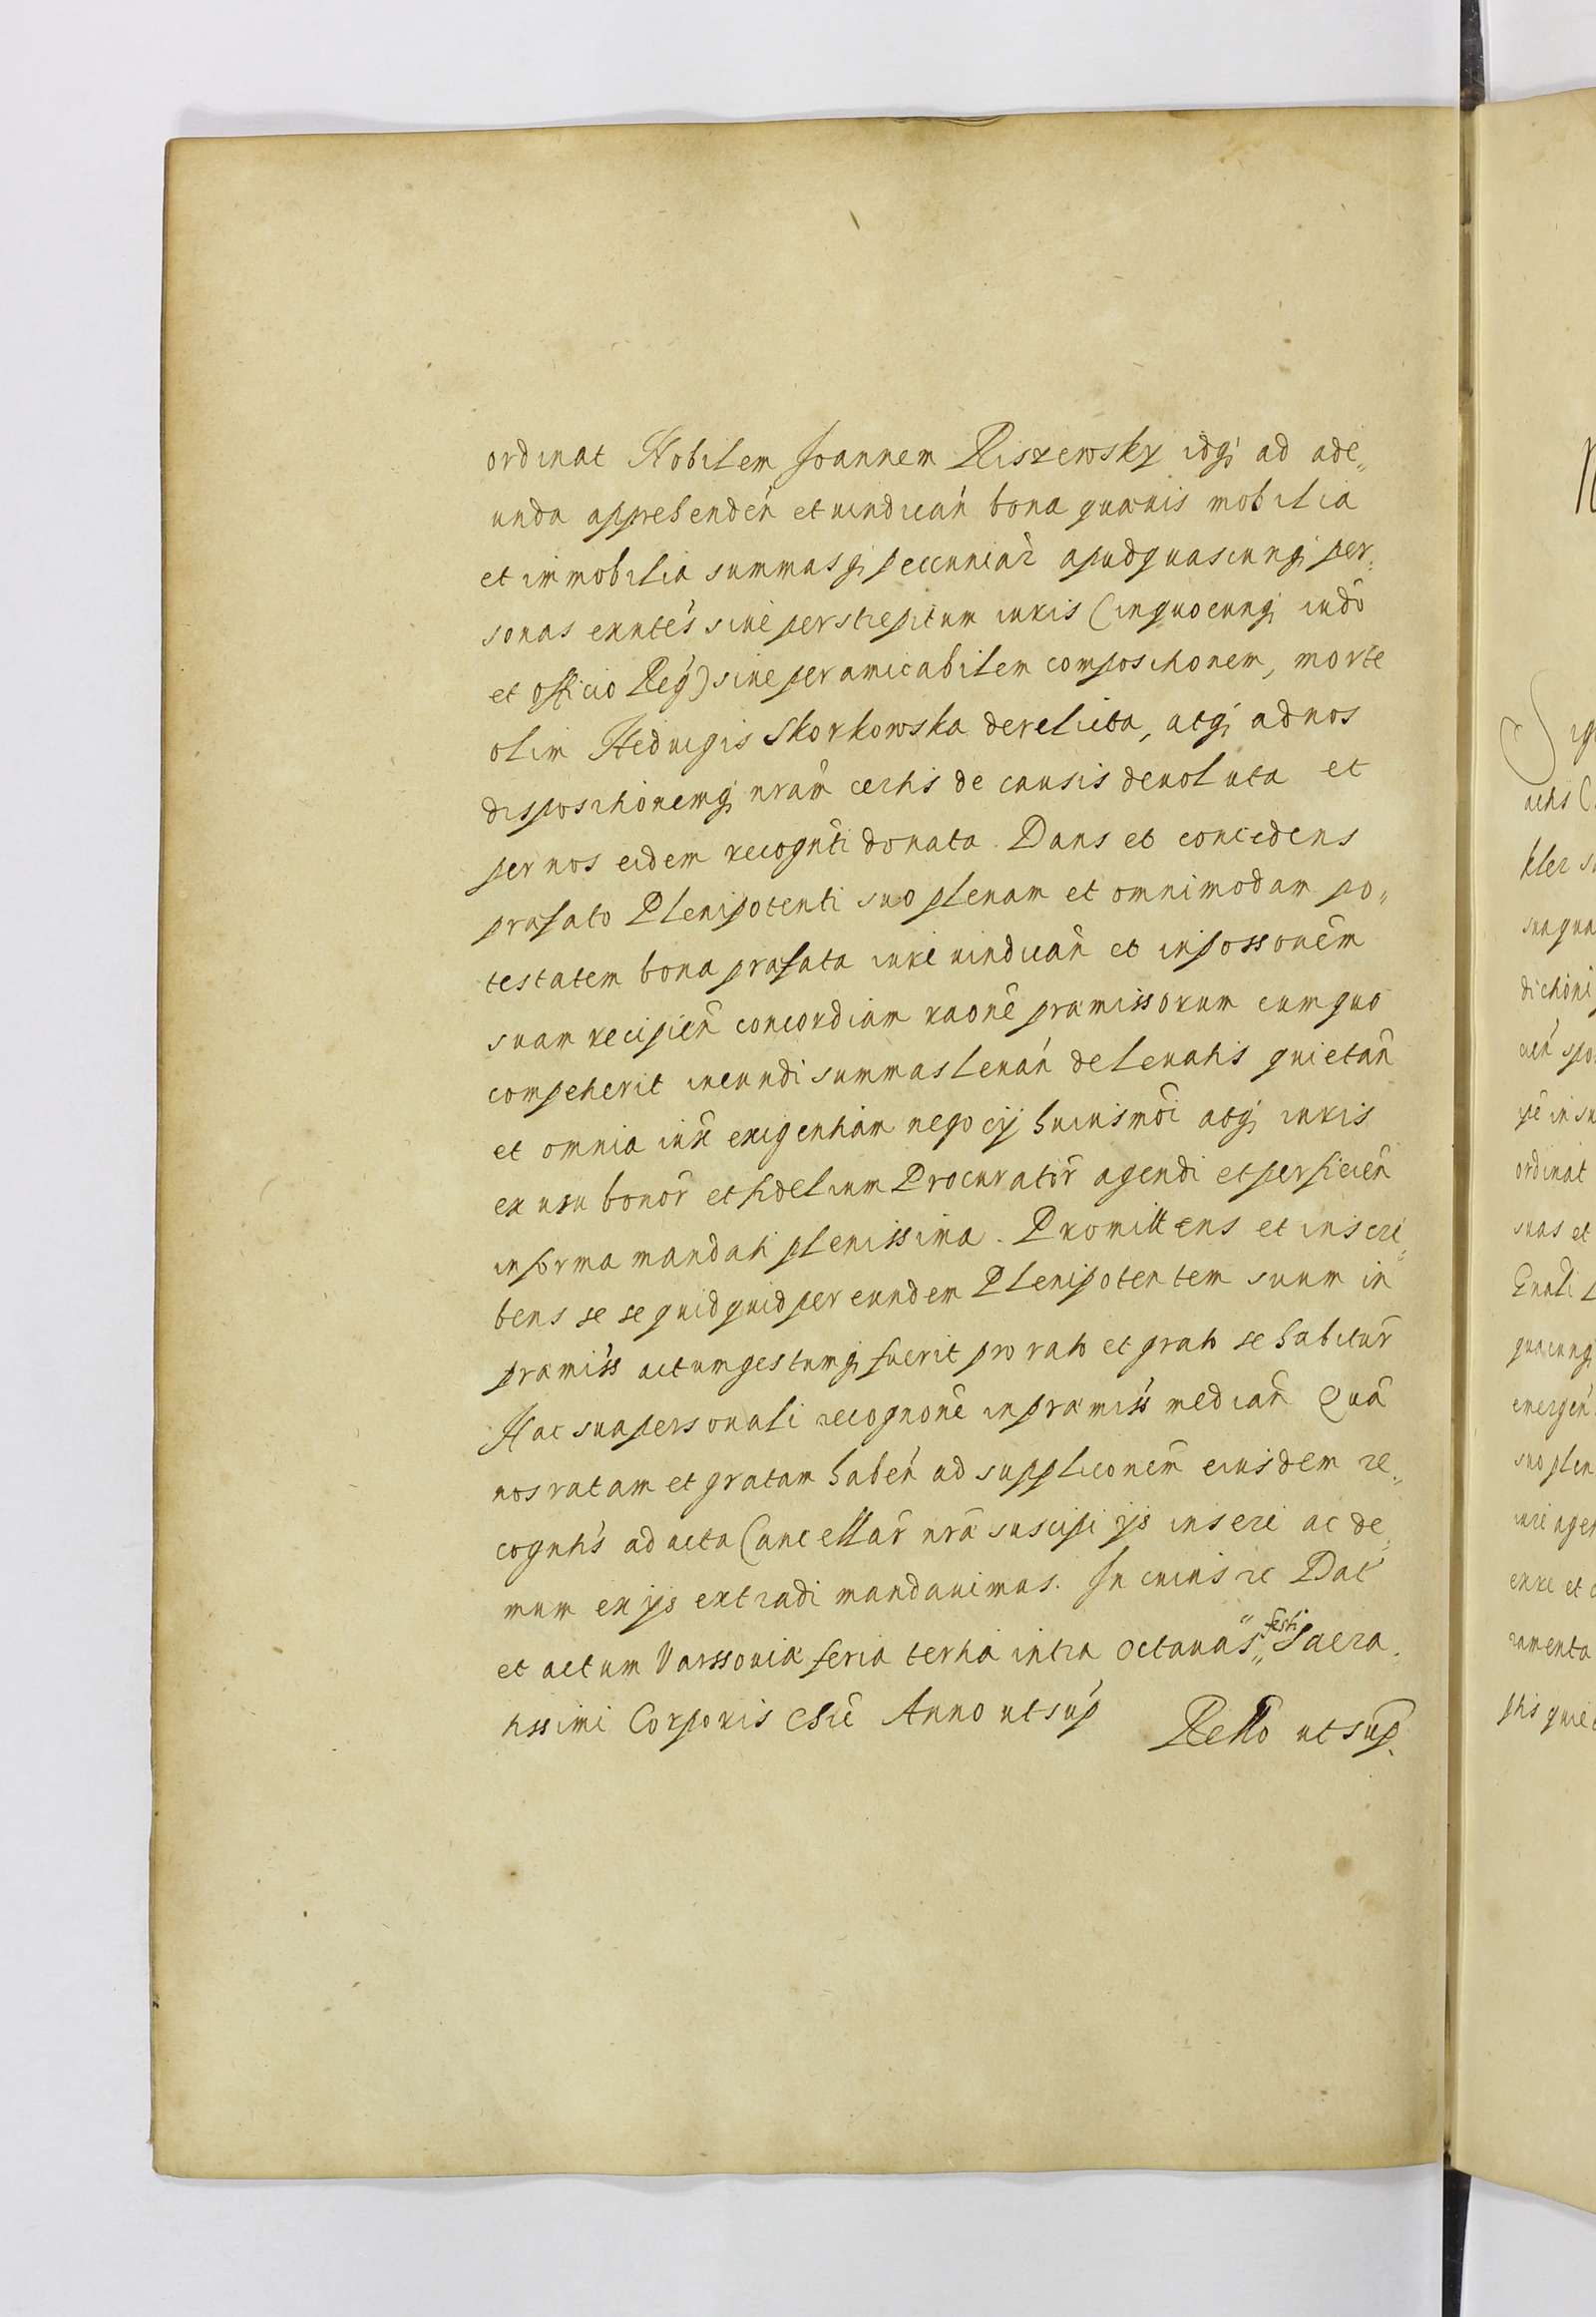 ordinat Nobilem Joannem Riszewsky idq; ad ade„
unda apprehendeń et uindicań bona quæuis mobilia
et immobilia summasq; pecuniar̄ apudquascunq; per„
sonas exntēs siue perstrepitum iuris (inquocunq; iudō
et officio Regṅ) siue per amicabilem compositionem, morte
olim Heduigis Skorkowska derelicta, atq; ad nos
dispositionemq; nram̄ certis de causis deuoluta et
per nos eidem recognti donata. Dans et concedens
præfato Plenipotenti suo plenam et omnimodam po„
testatem bona præfata iure uindicań et inpossonem̄
suam recipień concordiam raone præmissorum cum quo
competierit ineundi summas leuań de leuatis quietań
et omnia iux̄ exigentiam negocij huiusmōi atq; iuris
ex usu bonor̄ et fidelium Procurator̄ agendi et perficień
in forma mandati plenissima. Promittens et inscri„
bens se se quidquid per eundem Plenipotentem suum in
præmiss̄ actum gestumq; fuerit pro rato et grato se habitur̄
Hac sua personali recognone in præmiss̄ median̄ Quā
nos ratam et gratam habeń ad supplicōnem̄ eiusdem re„
cogntis̄ ad acta Cancellar̄ nræ suscipi ijs inseri ac de„
mum ex ijs extradi mandauimus. In cuius re Dat̄
et actum Varssouiæ feria tertia intra octauas„ festi Sacra„
tissimi Corporis Chri Anno ut sup̄
Rello ut sup̄.